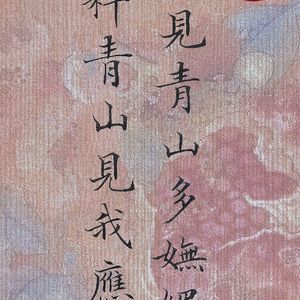 見青山多嫵媚
料青山見我應